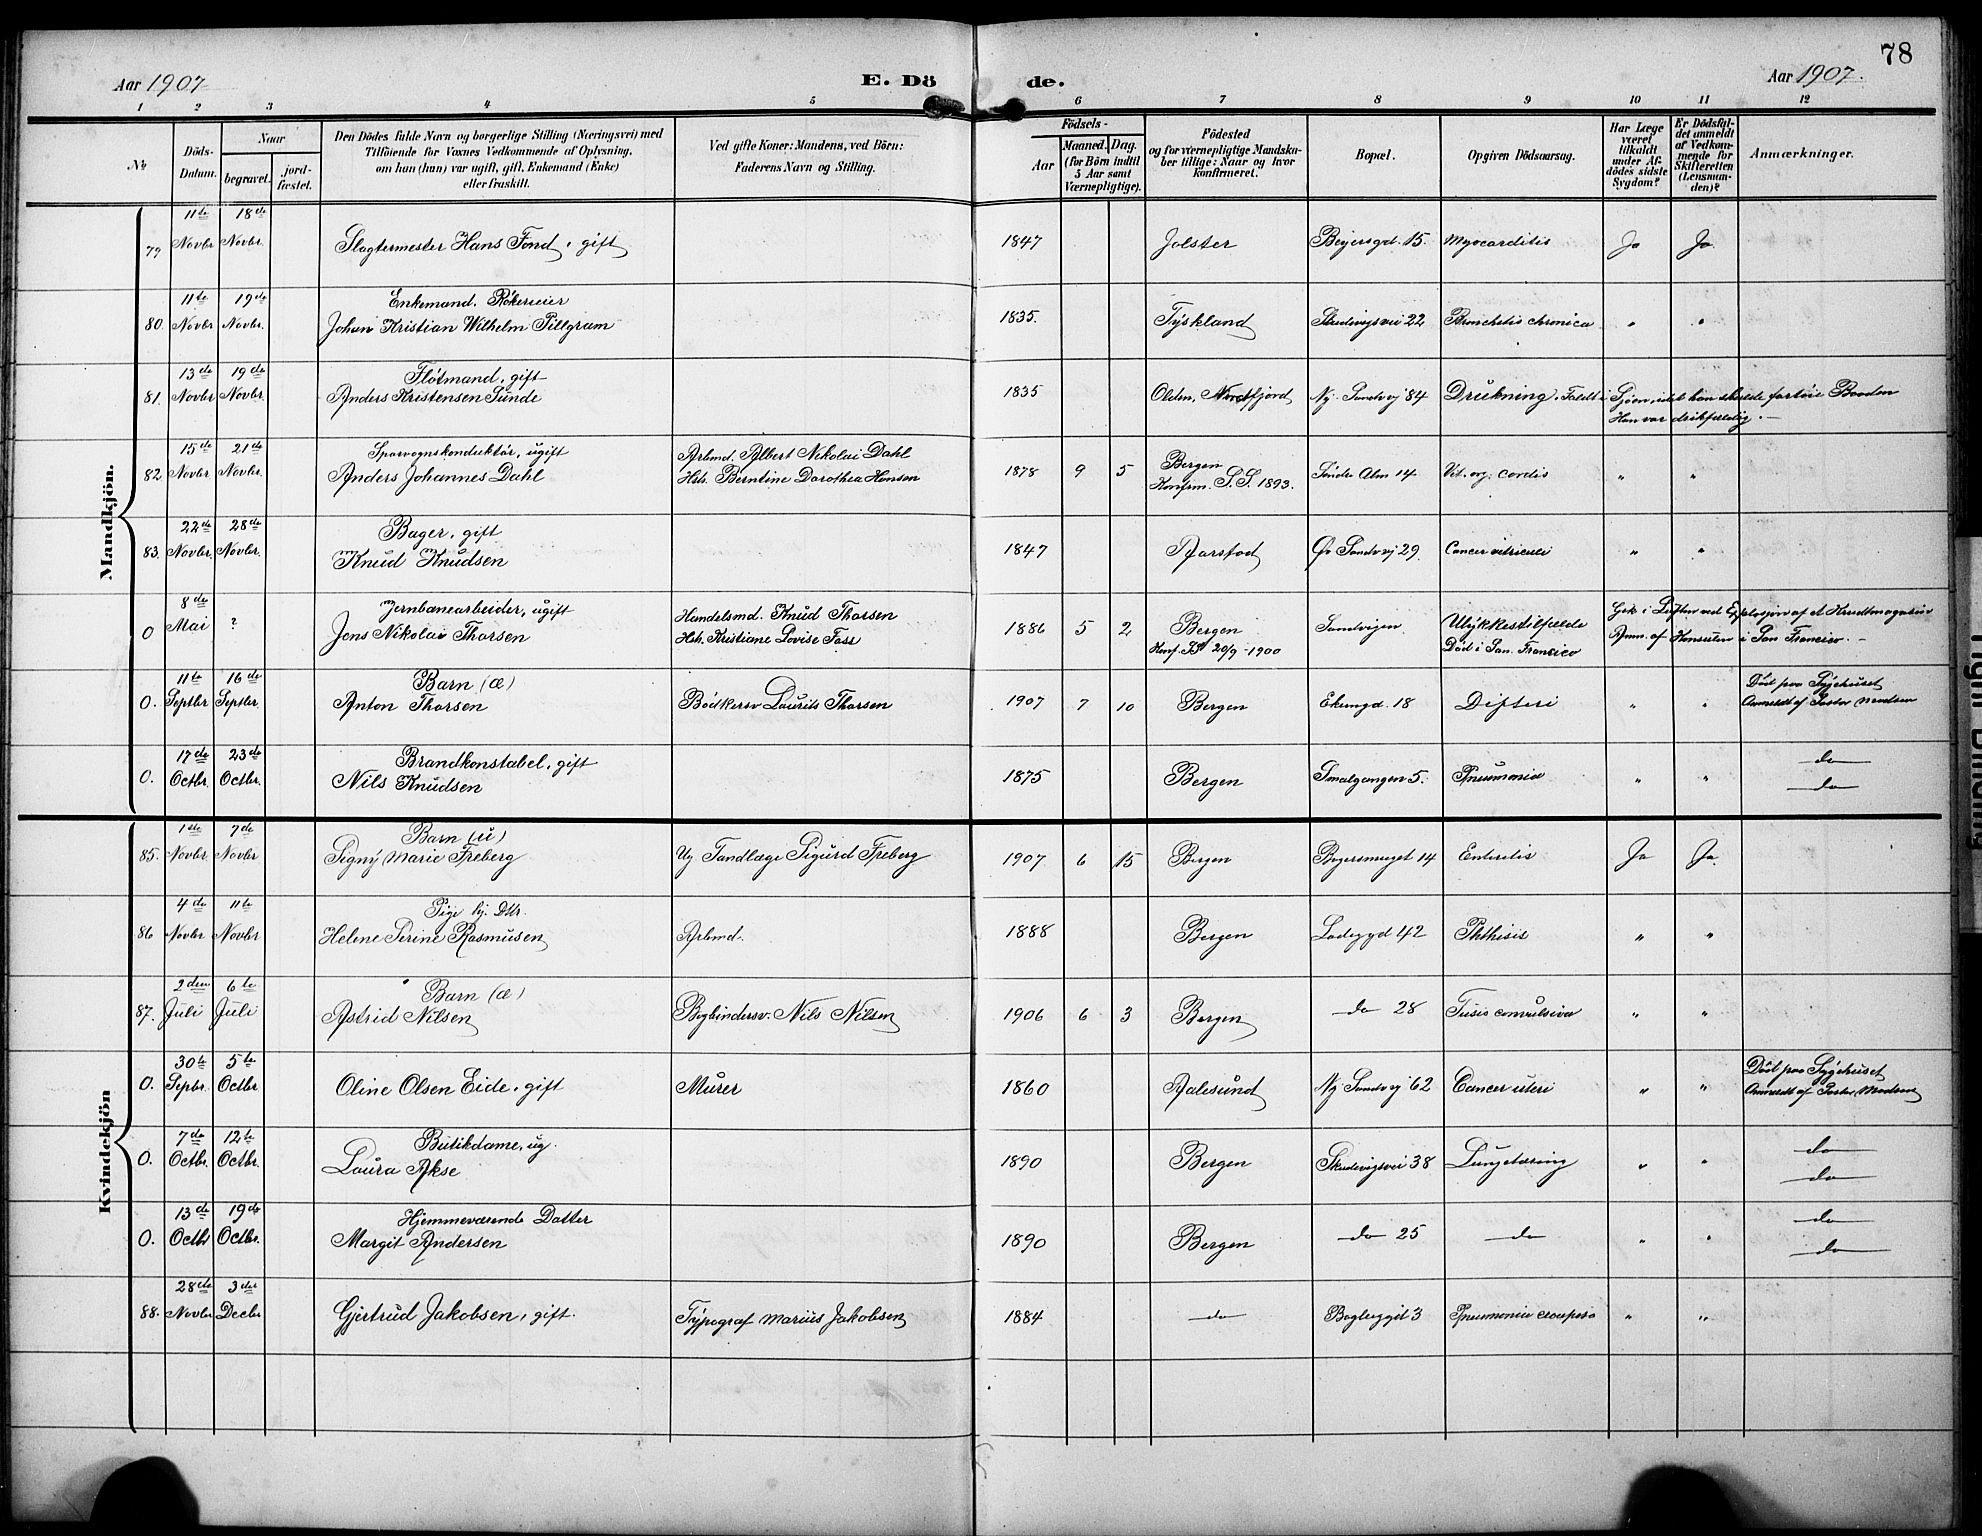 Aar 1907
E. Döde.
Aar 1907.
78
1 2 3 4 5 6 7 8 9 10 11 12
No
Döds-Datum.
Naar
begravet.
jordfæstet.
Den Dödes fulde Navn og borgerlige Stilling (Næringsvei) med
Tilföiende for Voxnes Vedkommende af Oplysning,
om han (hun) var ugift, gift, Enkemand (Enke)
eller fraskilt.
Ved gifte Koner: Mandens, ved Börn:
Faderens Navn og Stilling.
Födsels-
Aar
Maaned. Dag.
(for Börn indtil
5 Aar samt
Værnepligtige).
Födested
og for værnepligtige Mandskaber tillige: Naar og hvor
Konfirmeret.
Bopæl.
Opgiven Dödsaarsag.
Har Læge
været
tilkaldt
under Afdödes sidste
Sygdom?
Er Dödsfaldet anmeldt
af Vedkommende for
Skifteretten
(Lensmanden)?
Anmærkninger.
Mandkjön.
79 11te Novbr 18de Novbr. Slagtermester Hans Fond, gift 1847 Jolster Beyersgd. 15. Myocarditis Ja Ja.
80. 11te Novbr 19de Novbr. Enkemand.
Johan Kristian Wilhelm Pillgram 1835. Tyskland Skudevigsvei 22 Bronchitis chronica " "
81. 13de Novbr 19de Novbr. Flötmand, gift
Anders Kristensen Sunde 1835 Olden, Nordfjord Ny. Sandvj 84 Drukning. Faldt i Sjøen, idet han skulde fortöie Baaden
Han var drikfældig.
82 15de Novbr 21de Novbr. Sporvognskonduktör, ugift
Anders Johannes Dahl Arbmd. Albert Nikolai Dahl
Hst. Berntine Dorothea Hansen 1878 9 5 Bergen
Konfirm. S.S. 1893. Söndre Alm 14 Vit. org. cordis " "
83. 22de Novbr. 28de Novbr. Bager, gift
Knud Knudsen 1847 Aarstad Öv Sandvj 29. Cancer vetriculi " "
0 8de Mai ? Jernbanearbeider, ugift
Jens Nikolai Thorsen Handelsmd. Knud Thorsen
Hst. Kristiane Lovise 1886 5 2 Bergen
Konf. 20/9 1900 Sandvigen. Ulykkestilfælde
Död i San. Francisco Gik i Luften ved Explosjon af et Krudtmagasin
Anm. af Konsulen i San Francisco.
0. 11te Septbr 16de Septbr Barn (æ)
Anton Thorsen Bödkersv Laurits Thorsen 1907 7 10 Bergen 18 Difteri " " Död paa Sygehuset
Anmeldt af Pastor Madsen
0. 17de Octbr. 23de Octbr. Brandkonstabel, gift
Nils Knudsen 1875 Bergen Smalgangen 5. Pneumonia " " do
do
Kvindekjön
85. 1ste Novbr. 7de Novbr Barn (u)
Signy Marie Freberg Ug Tandlæge Sigurd Freberg 1907 6 15 Bergen 14 Enteritis Ja Ja.
86 4de Novbr 11te Novbr Pige hj. Dttr.
Helene Serine Rasmusen Arbmd. 1888 Bergen Ladeggd 42 Phthisis " "
87. 2den Juli 6te Juli Barn (æ)
Astrid Nilsen Bogbindersv. Nils Nilsen 1906 6 3 Bergen do 28 Tusis convulsiva " "
0. 30te Sepbr. 5te Octbr Oline Olsen Eide, gift Murer 1860 Aalesund Ny Sandvj 62 Cancer uteri " " Död paa Sygehuset
Anmeldt af Pastor Madsen
0. 7de Octbr. 12te Octbr. Butikdame, ug.
Laura Akse 1890 Bergen Skudevigsvei 38 Lungetæring " " do
do
0. 13de Octbr 19de Octbr. Hjemmeværende Datter
Margit Andersen 1890 Bergen do 25 do " " do
do
88. 28de Novbr 3die Decbr Gjertrud Jakobsen, gift. Typograf Marius Jakobsen 1884 do 3 Pneumonia crouposa " "